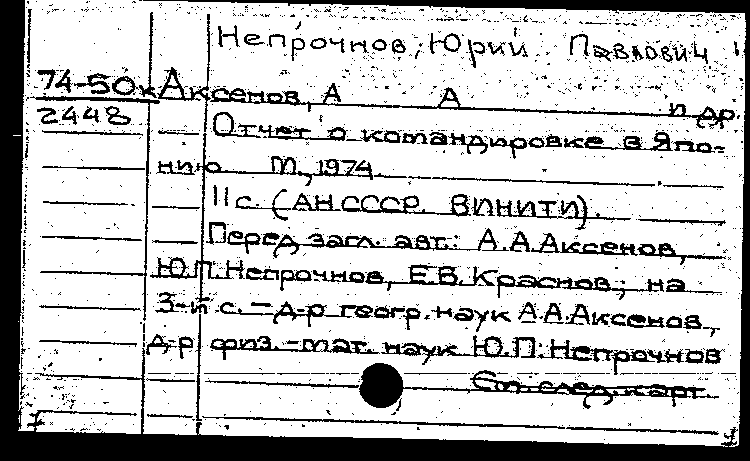 Непрочнов, Юрий Павлович
74-50к Аксенов, А А и др.
2448 Отчет о командировке в Япо-
нию М., 1974.
11 с. (АН СССР. ВИНИТИ).
Перед загл. авт.: А.А.Аксенов,
Ю.П.Непрочнов, Е.В.Краснов; на
3-й с. – д-р геогр. наук А.А.Аксенов,
д-р физ.-мат. наук Ю.П.Непрочнов
См. след. карт.